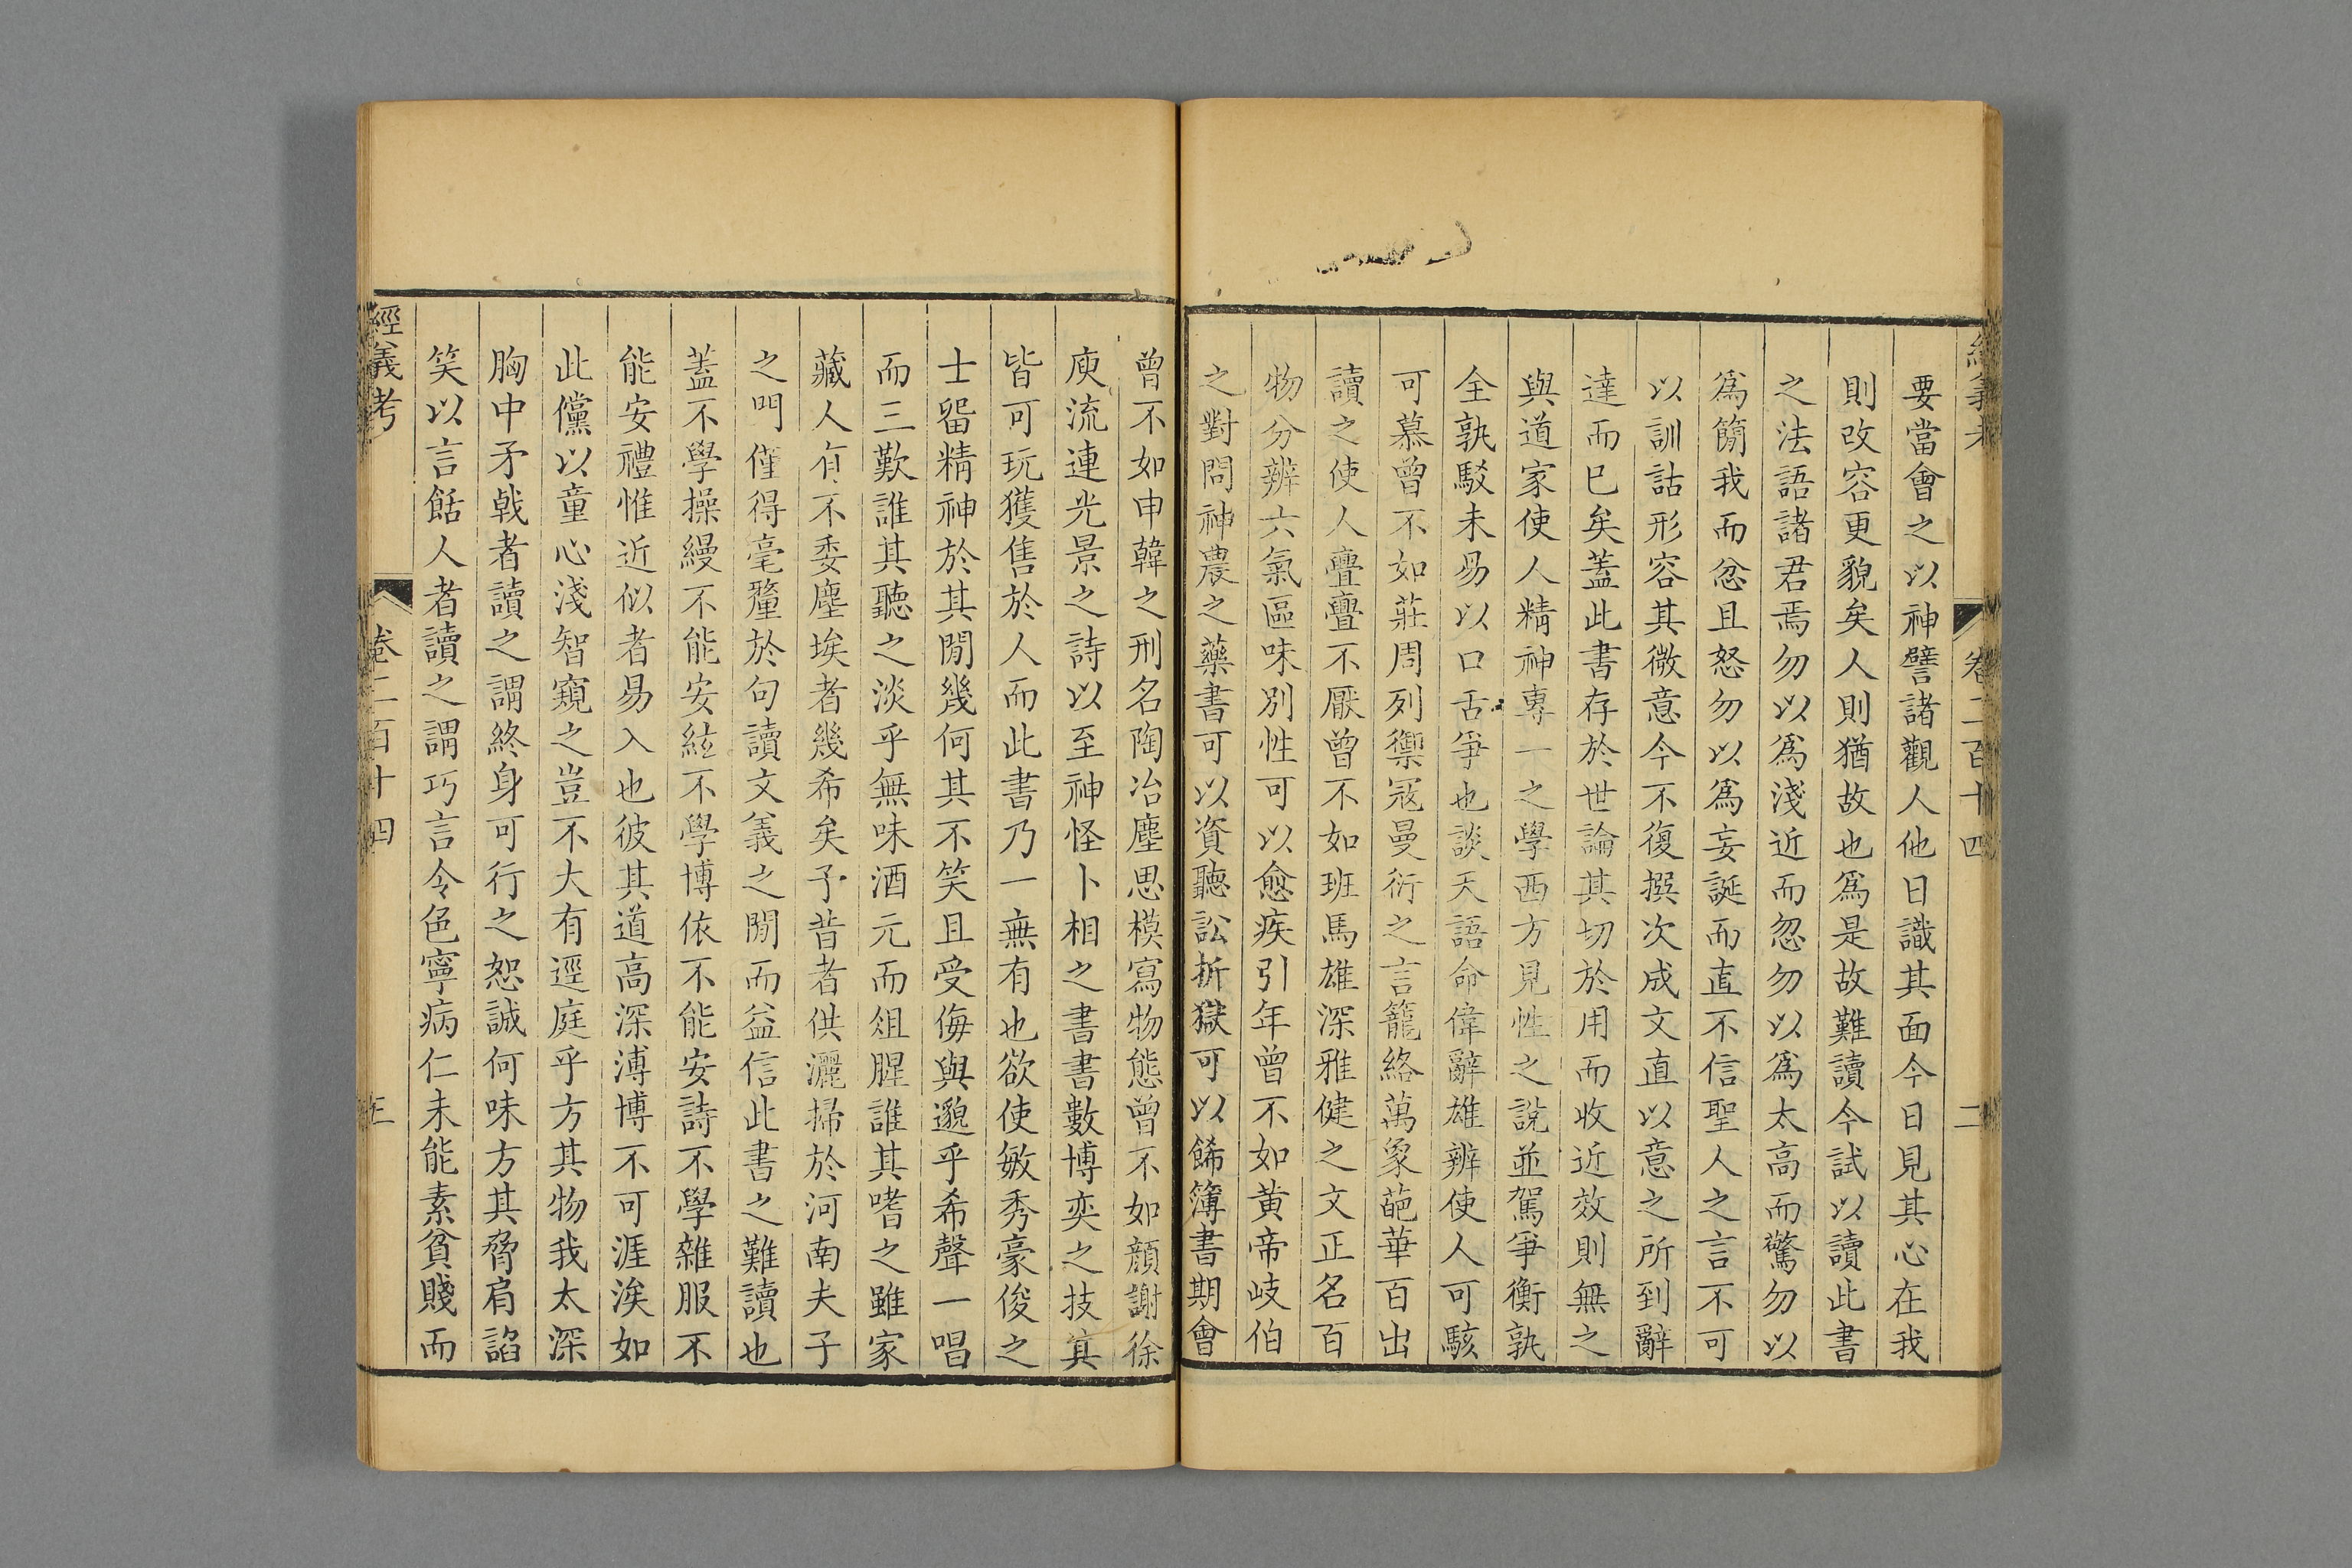 經義考 卷二百十四 二
要當會之以神譬諸觀人他日識其面今日見其心在我
則改容更貌矣人則猶故也爲是故難讀今試以讀此書
之法語諸君焉勿以爲淺近而忽勿以爲太高而驚勿以
爲簡我而忿且怒勿以爲妄誕而直不信聖人之言不可
以訓詁形容其微意今不復撰次成文直以意之所到辭
達而已矣蓋此書存於世論其切於用而收近效則無之
與道家使人精神專一之學西方見性之說並駕爭衡孰
全孰駁未易以口舌爭也談天語命偉辭雄辨使人可駭
可慕曾不如莊周列禦冦曼衍之言籠絡萬象葩華百出
讀之使人亹亹不厭曾不如班馬雄深雅健之文正名百
物分辨六氣區味別性可以愈疾引年曾不如黄帝岐伯
之對問神農之藥書可以資聽訟折獄可以餙簿書期會
曾不如申韓之刑名陶冶塵思模寫物態曾不如顔謝徐
庾流連光景之詩以至神怪卜相之書書數博奕之技其
皆可玩獲售於人而此書乃一無有也欲使敏秀豪俊之
士畱精神於其閒幾何其不笑且受侮與邈乎希聲一唱
而三歎誰其聽之淡乎無味酒元而俎腥誰其嗜之雖家
藏人有不委塵埃者幾希矣予昔者供灑掃於河南夫子
之門僅得毫釐於句讀文義之閒而益信此書之難讀也
蓋不學操縵不能安絃不學博依不能安詩不學雜服不
能安禮惟近似者易入也彼其道高深溥博不可涯涘如
此儻以童心淺智窺之豈不大有逕庭乎方其物我太深
胸中矛戟者讀之謂終身可行之恕誠何味方其脅肩諂
笑以言餂人者讀之謂巧言令色寧病仁未能素貧賤而
經義考 卷二百十四 三